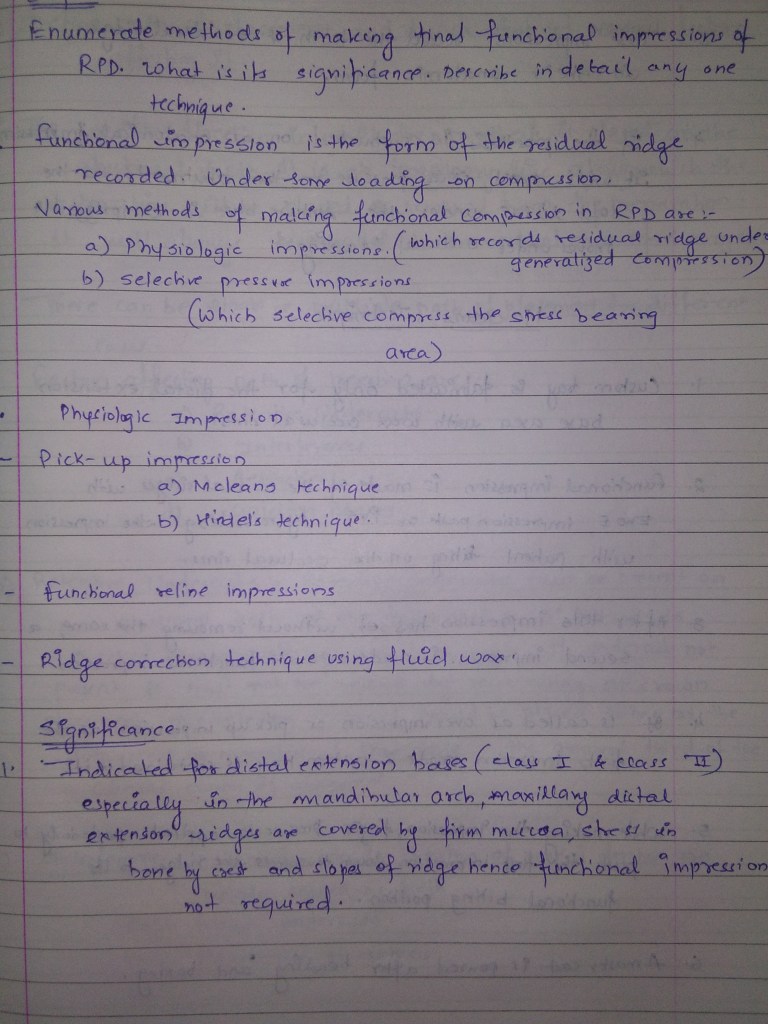 Enumerate methods of making final functional impressions of
RPD. What is its significance. Describe in detail any one
technique.
Functional impression is the form of the residual ridge
recorded. Under some loading on compression.
Various methods of making functional compression in RPD are :-
a) Physiologic impressions. (which records residual ridge under
generalized compression)
b) selective pressure impressions
(Which selective compress the stress bearing
area)
Physiologic Impression
- Pick-up impression
a) Mcleans technique
b) Hindel's technique.
- Functional reline impressions
- Ridge correction technique using fluid wax.
Significance
1. Indicated for distal extension bases (class I & class II)
especially in the mandibular arch, maxillary distal
extension ridges are covered by firm mucosa, stress in
bone by crest and slopes of ridge hence functional impression
not required.